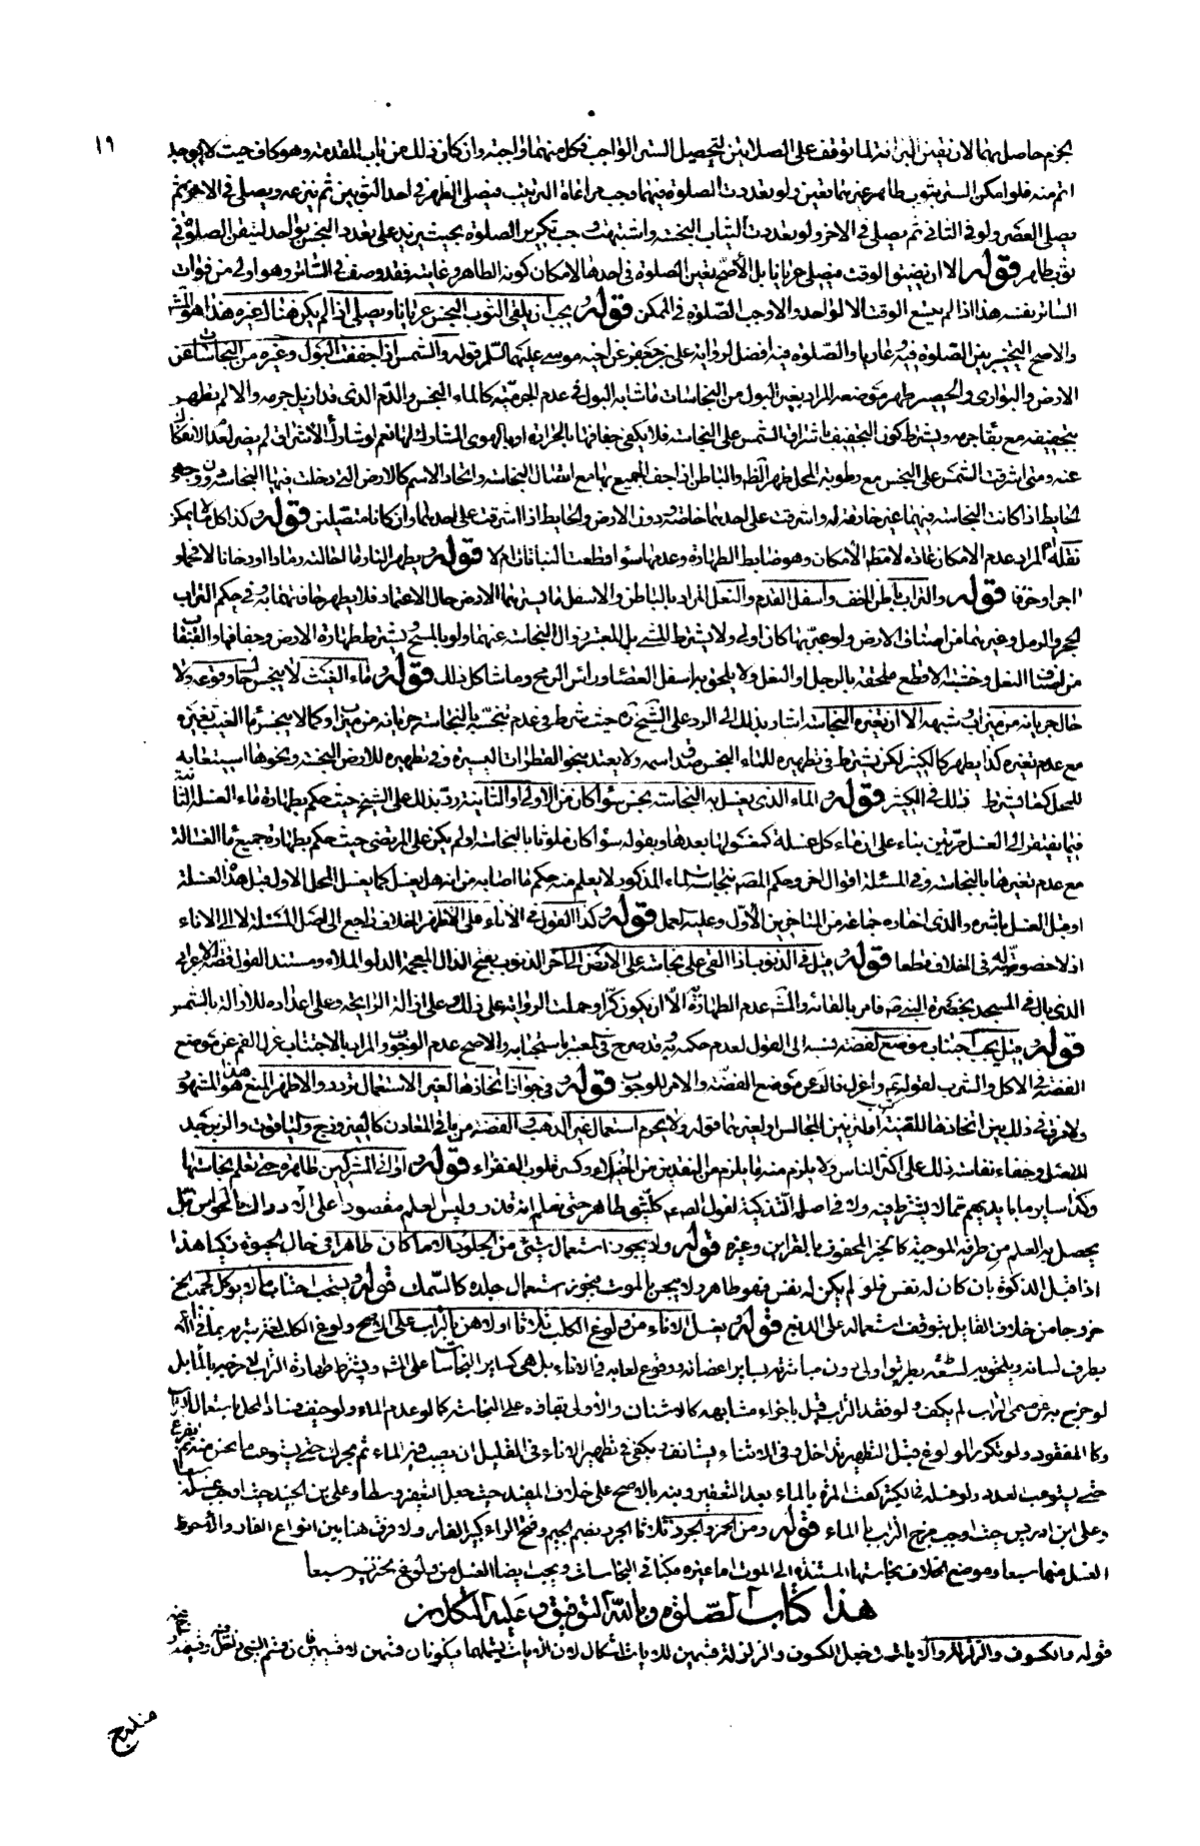 ١٩
الجزم حاصل بهما لان تيقن البرائة لما توقف على الصلاتين لتحصيل الستر الواجب فكل منهما واجبة وان كان ذلك من باب المقدمة وهو كاف حيث لا يوجد
اتم منه فلو امكن الستر بثوب طاهر غيرهما تعين ولو تعددت الصلوة فيهما وجب مراعاة الترتيب فيصلى الظهر في احد الثوبين ثم ينزعه ويصلى في الاخر ثم
يصلى العصر ولو في الثاني ثم يصلى في الاخر ولو تعددت الثياب النجسة واشتبهت وجب تكرير الصلوة بحيث يزيد على تعدد النجس بواحد ليتيقن الصلوة في
ثوب طاهر قوله الا ان يضيق الوقت فيصلى عريانا بل الأصح تعين الصلوة في احدها لامكان كونه الطاهر وغايته فقد وصف في الساتر وهو اولى من فوات
الساتر نفسه هذا اذا لم يتسع الوقت الا لواحد والا وجب الصلوة في الممكن قوله يجب ان يلقى الثوب النجس عريانا ويصلى اذا لم يكن هناك غيره هذا هو المشهور
والاصح التخيير بين الصلوة فيه وعاريا والصلوة فيه افضل لرواية على بن جعفر عن اخيه موسى عليهما السلم قوله والشمس اذا جففت البول وغيره من النجاسات عن
الارض والبوارى والحصير طهر موضعه المراد بغير البول من النجاسات ما شابه البول في عدم الجرمية كالماء النجس والدم الذى قد ازيل جرمه والا لم يطهر
بتجفيفه مع بقاء جرمه ويشترط كون التجفيف باشراق الشمس على النجاسة فلا يكفي جفافها بالحرارة او بالهوى المشارك لها نعم لو شارك الاشراق لم يضر لعدم الانفكاك
عنه ومتى اشرقت الشمس على النجس مع رطوبة المحل طهر الظاهر والباطن اذا جف الجميع بها مع اتصال النجاسة واتحاد الاسم كالارض التى دخلت فيها النجاسة دون وجه
الحايط اذا كانت النجاسة فيهما غير خارقة له واشرقت على احديهما خاصة ودون الارض والحايط اذا اشرقت على احديهما وان كانا متصلين قوله وكذا كل ما لا يمكن
نقله المراد عدم الامكان عادة لا مطلق الامكان وهو ضابط الطهارة وعدمها سواء قطعت النباتات ام لا قوله ويطهر النار ما احالته رمادا او دخانا لا فحما او
اجرا وخزفا قوله والتراب باطن الخف واسفل القدم والنعل المراد بالباطن والاسفل ما يستر بهما الارض حال الاعتماد فلا يطهر حافتهما به وفى حكم التراب
الحجر والرمل وغيرهما من اصناف الارض ولو عبر بها كان اولى ولا يشترط المشى بل المعتبر زوال النجاسة عنهما ولو بالمسح ويشترط طهارة الارض وجفافها والقبقاب
من اصناف النعل وخشبة الاقطع ملحقة بالرجل او النعل ولا يلحق بها اسفل العصا ورأس الرمح وما شاكل ذلك قوله وماء الغيث لا ينجس حال وقوعه ولا
حال جريانه من ميزاب وشبهه الا ان تغيره النجاسة اشار بذلك الى الرد على الشيخ ره حيث شرط في عدم تنجسه بالنجاسة جريانه من ميزاب وكما لا ينجس ماء الغيث بغيره
مع عدم تغيره كذا يطهر كالكثير لكن يشترط في تطهيره للماء النجس صدق اسمه ولا يعتد بنحو القطرات اليسيرة وفى تطهيره للارض النجسة ونحوها استيعابه
للمحل كما يشترط ذلك في الكثير قوله الماء الذى يغسل به النجاسة نجس سواء كان من الاولى او الثانية رد بذلك على الشيخ حيث حكم بطهارة ماء الغسلة الثانية
فيما يفتقر الى الغسل مرتين بناء على ان ماء كل غسلة كمغسولها بعدها وبقوله سواء كان ملوثا بالنجاسة او لم يكن على المرتضى حيث حكم بطهارة جميع ماء الغسالة
مع عدم تغيرها بالنجاسة وفى المسئلة اقوال اخر وحكم المص بنجاسة الماء المذكور لا يعلم منه حكم ما اصابه من انه هل يغسل كما يغسل المحل الاول قبل هذه الغسلة
او قبل الغسل باشره والذى اختاره جماعة من المتأخرين الأول وعليه العمل قوله وكذا القول في الاناء على الاظهر الخلاف راجع الى اصل المسئلة لا الى الاناء
اذ لا خصوصية له في الخلاف قطعا قوله وقيل في الذنوب اذا القى على نجاسة على الارض الى آخر الذنوب بفتح الذال المعجمة الدلو الملاء ومستند القول قصة الاعرابى
الذى بال في المسجد بحضرة النبى ص فامر بالقائه والمشهور عدم الطهارة الا ان يكون كرا وحملت الرواية على ذلك وعلى ازالة الرايحة وعلى اعداده للازالة بالشمس
قوله وقيل يجب اجتناب موضع الفضة نسبه الى القول لعدم حكمه به وقد صرح في المعتبر باستحبابه والاصح عدم الوجوب والمراد بالاجتناب عزل الفم عن موضع
الفضة في الاكل والشرب لقوله ع واعزل فاك عن موضع الفضة والامر للوجوب قوله وفى جواز اتخاذها لغير الاستعمال تردد والاظهر المنع هذا هو المشهور
ولا فرق في ذلك بين اتخاذها للقنية او لتزيين المجالس او لغيرهما قوله ولا يحرم استعمال غير الذهب والفضة من باقى المعادن كالفيروزج والياقوت والزبرجد
للاصل وخفاء نفاسة ذلك على اكثر الناس ولا يلزم منه ما يلزم من النقدين من الخيلاء وكسر قلوب الفقراء قوله اوانى المشركين طاهرة حتى تعلم نجاستها
وكذا ساير ما بايديهم مما لا يشترط فيه ولا في اصله التذكية لقول الصم كل شئ طاهر حتى تعلم انه قذر وليس العلم مقصورا على الادراك بالحواس بل
يحصل به العلم من طرقه الموجبة كالخبر المحفوف بالقراين وغيره قوله ولا يجوز استعمال شئ من الجلود الا ما كان طاهرا في حال الحيوة ذكيا هذا
اذا قبل الذكوة بان كان له نفس فلو لم يكن له نفس فهو طاهر ولا ينجس بالموت فيجوز استعمال جلده كالسمك قوله ويستحب اجتناب ما لا يوكل لحمه حتى يدبغ
خروجا من خلاف القايل بتوقف استعماله على الدبغ قوله ويغسل الاناء من ولوغ الكلب ثلاثا اولاهن بالتراب على الاصح ولوغ الكلب هو شربه مما في الاناء
بطرف لسانه ويلحق به لطعه بطريق اولى دون مباشرته بساير اعضائه ووقوع لعابه في الاناء بل هى كساير النجاسات على المشهور ويشترط طهارة التراب لا مزجه بالماء بل
لو خرج به عن مسمى التراب لم يكف ولو فقد التراب قيل باجزاء مشابهه كالاشنان والأولى بقاؤه على النجاسة كما لو عدم الماء ولو خيف فساد المحل باستعمال التراب
فكالمفقود ولو تكرر الولوغ قبل التطهير تداخل وفى الاثناء يستانف ويكفى في تطهير الاناء في القليل ان يصب فيه الماء ثم يحرك حتى يستوعب ما نجس منه ثم يفرغ
حتى يستوعب العدد ولو غسله في الكثير كفت المرة بالماء بعد التعفير ونبه بالاصح على خلاف المفيد حيث جعل التعفير وسطا وعلى ابن الجنيد حيث اوجب غسله سبعا
وعلى ابن ادريس حيث اوجب مزج التراب بالماء قوله ومن الخمر والجرذ ثلاثا الجرذ بضم الجيم وفتح الراء كبير الفار ولا فرق هنا بين انواع الفار والأحوط
الغسل منهما سبعا وموضع الخلاف نجاستها المستندة الى الموت اما غيره فكباقى النجاسات ويجب ايضا الغسل من ولوغ خنزير سبعا
هذا كتاب الصلوة وبالله التوفيق وعليه التكلان
قوله والكسوف والزلزلة والآيات في جعل الكسوف والزلزلة قسمين للايات اشكال لان الايات يشملهما فيكونان قسمين لا قسيمين